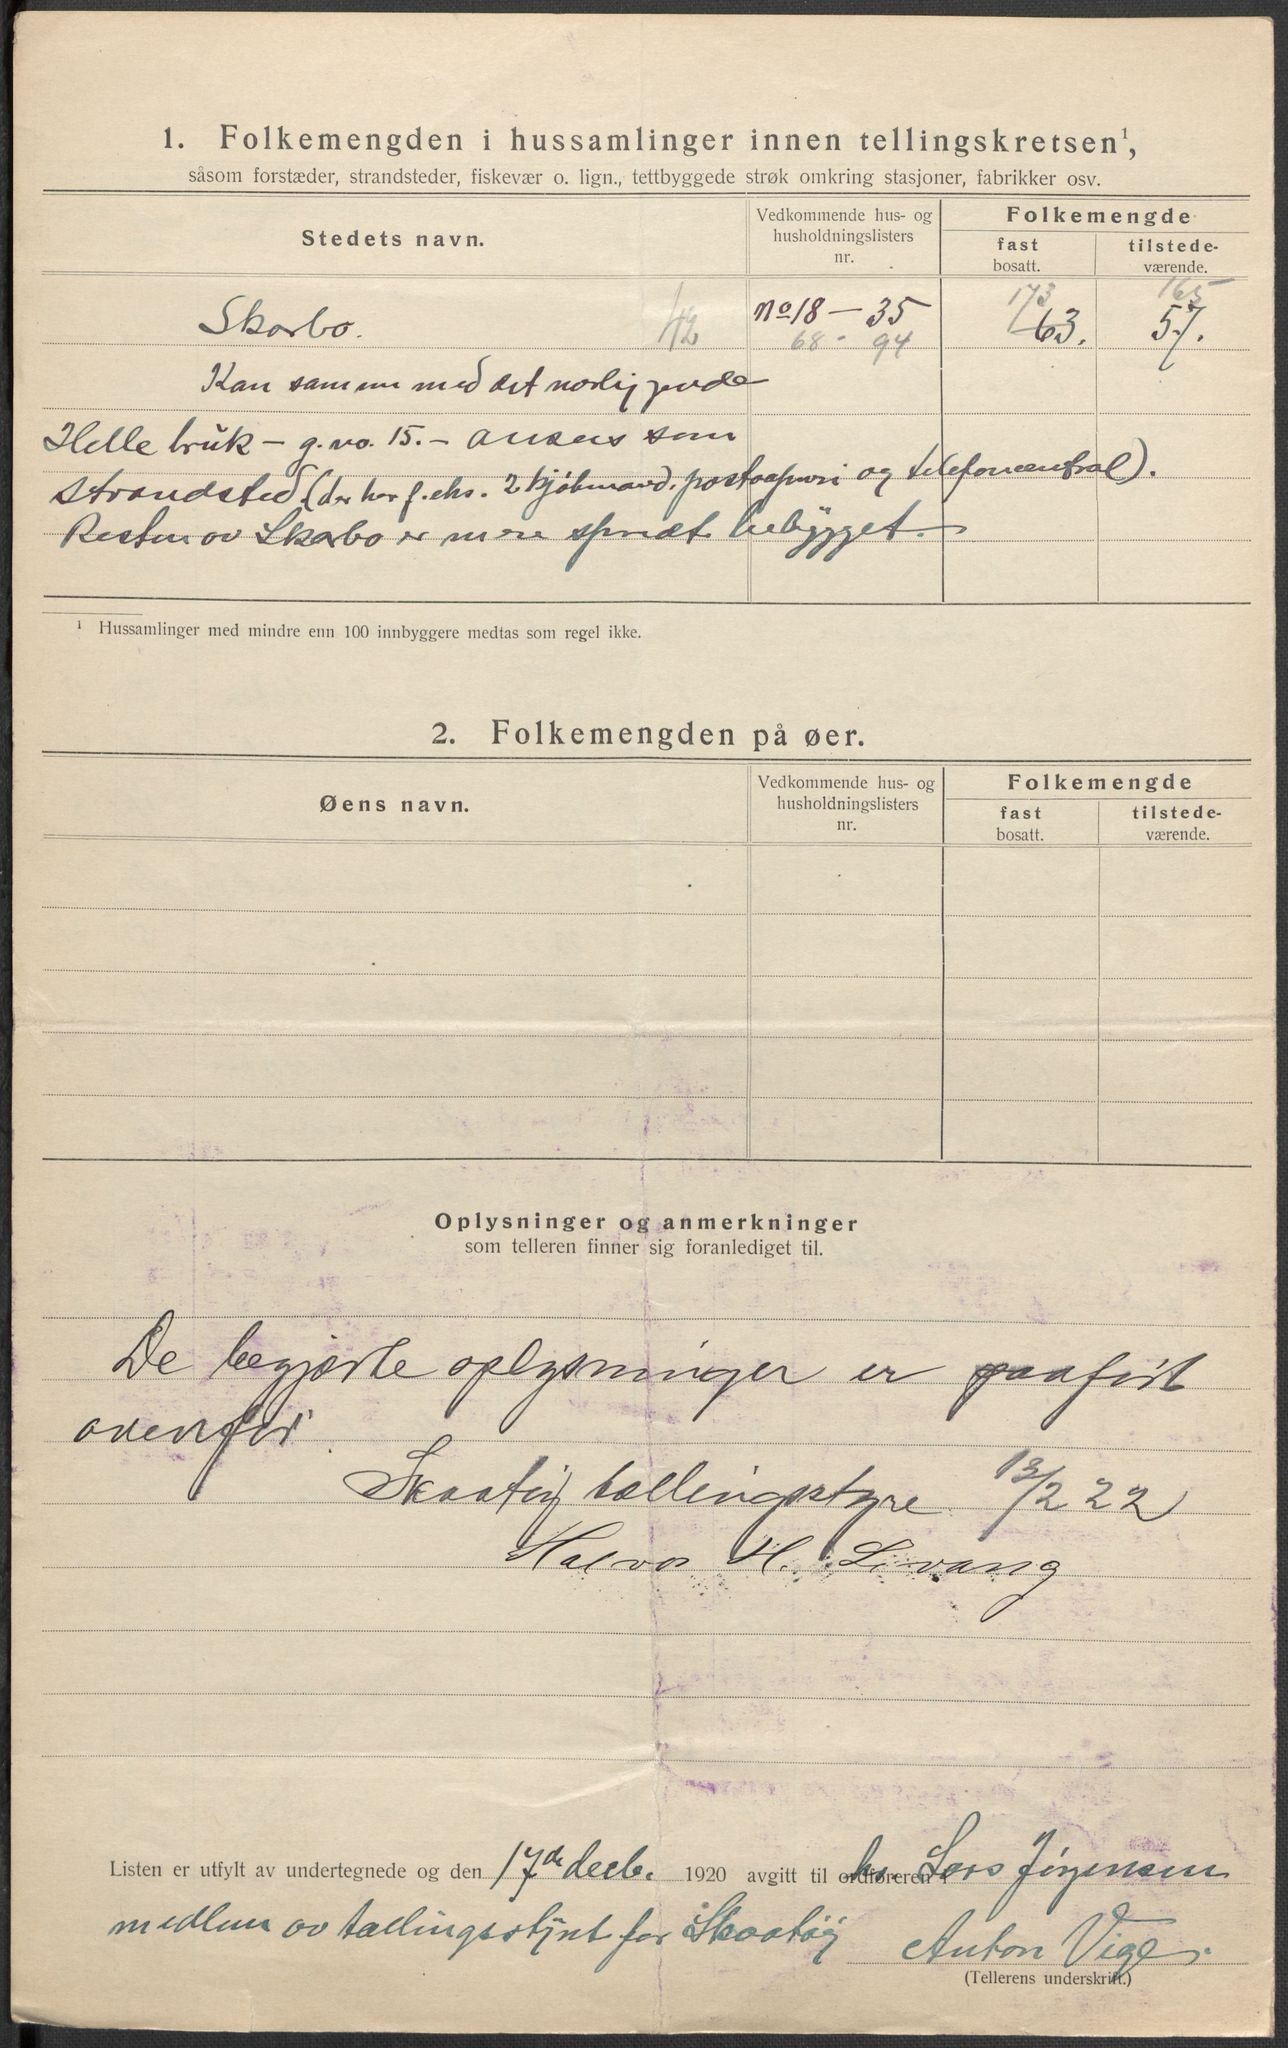 1. Folkemengden i hussamlinger innen tellingskretsen¹,
såsom forstæder, strandsteder, fiskevær o. lign., tettbyggede strøk omkring stasjoner, fabrikker osv.
Stedets navn.
Vedkommende hus- og husholdningslisters nr.
Folkemengde
fast bosatt.
tilstede-værende.
173 165
Skarbo. 42 No 18 — 35 63. 57.
68 - 94
Kan sammen med det nærliggende
Helle bruk — g.no. 15. — ansees som
strandsted (der har f.eks. 2 kjøbmænd, postaapneri og telefoncentral).
Resten av Skarbo er mere spredt bebygget.
¹ Hussamlinger med mindre enn 100 innbyggere medtas som regel ikke.
2. Folkemengden på øer.
Øens navn.
Vedkommende hus- og husholdningslisters nr.
Folkemengde
fast bosatt.
tilstede-værende.
Oplysninger og anmerkninger
som telleren finner sig foranlediget til.
De begjærte oplysninger er paaført
ovenfor.
Skaatøy tællingsstyre 13/2 22
Halvor H. Levang
Listen er utfylt av undertegnede og den 17de decb. 1920 avgitt til ordføreren i hr. Lars Jørgensen
medlem av tællingsstyret for Skaatøy Anton Vige.
(Tellerens underskrift.)